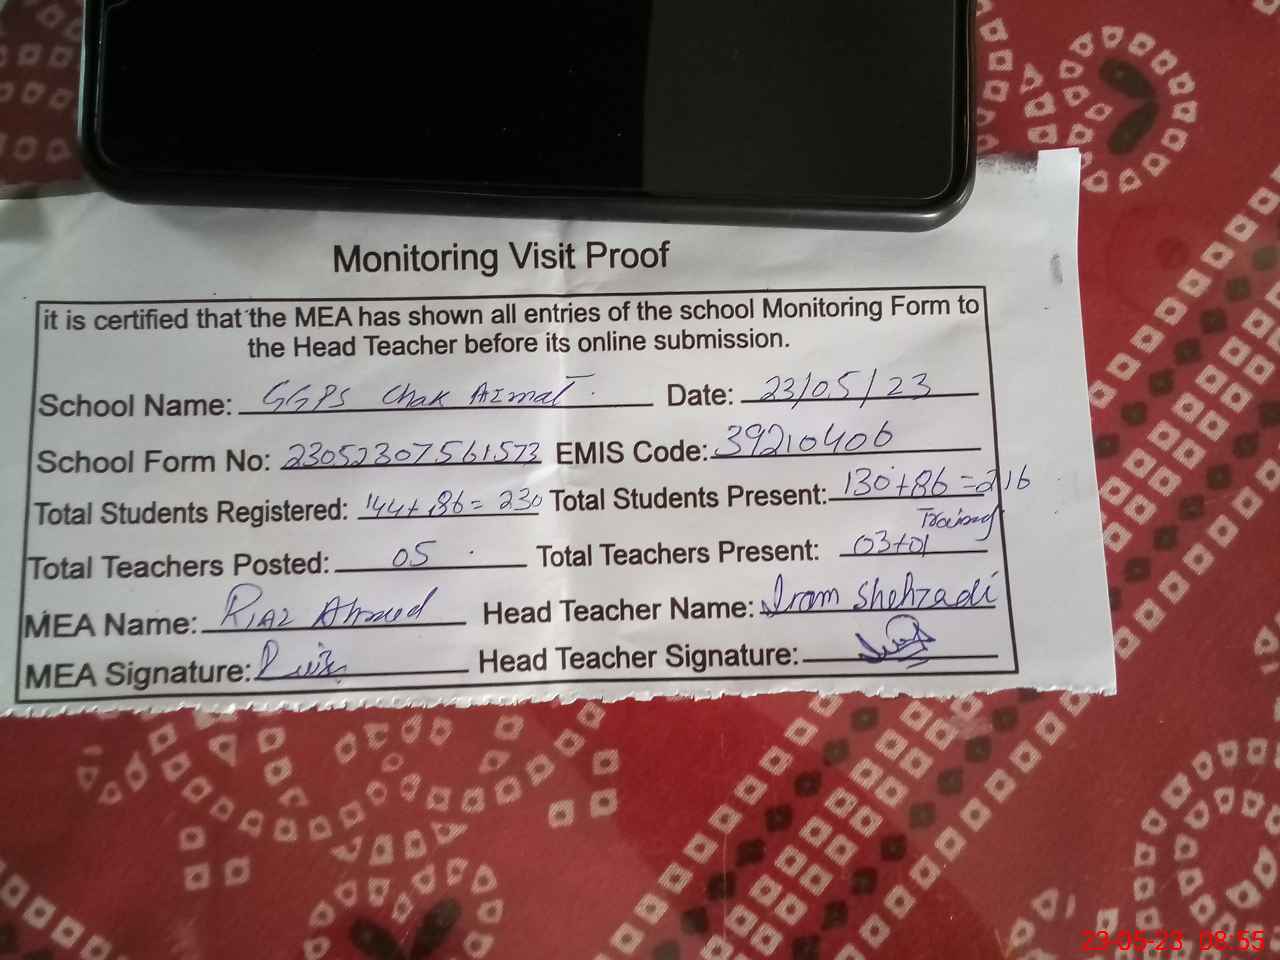 Monitoring Visit Proof
it is certified that the MEA has shown all entries of the school Monitoring Form to
the Head Teacher before its online submission.
School Name: GGPS Chak Azmat Date: 23/05/23
School Form No: 23052307561573 EMIS Code: 39210406
Total Students Registered: 144+86=230 Total Students Present: 130+86=216
Total Teachers Posted: 05 Total Teachers Present: 03+01 Training
MEA Name: Riaz Ahmed Head Teacher Name: Iram Shehzadi
MEA Signature: Head Teacher Signature:
23-05-23 08:55